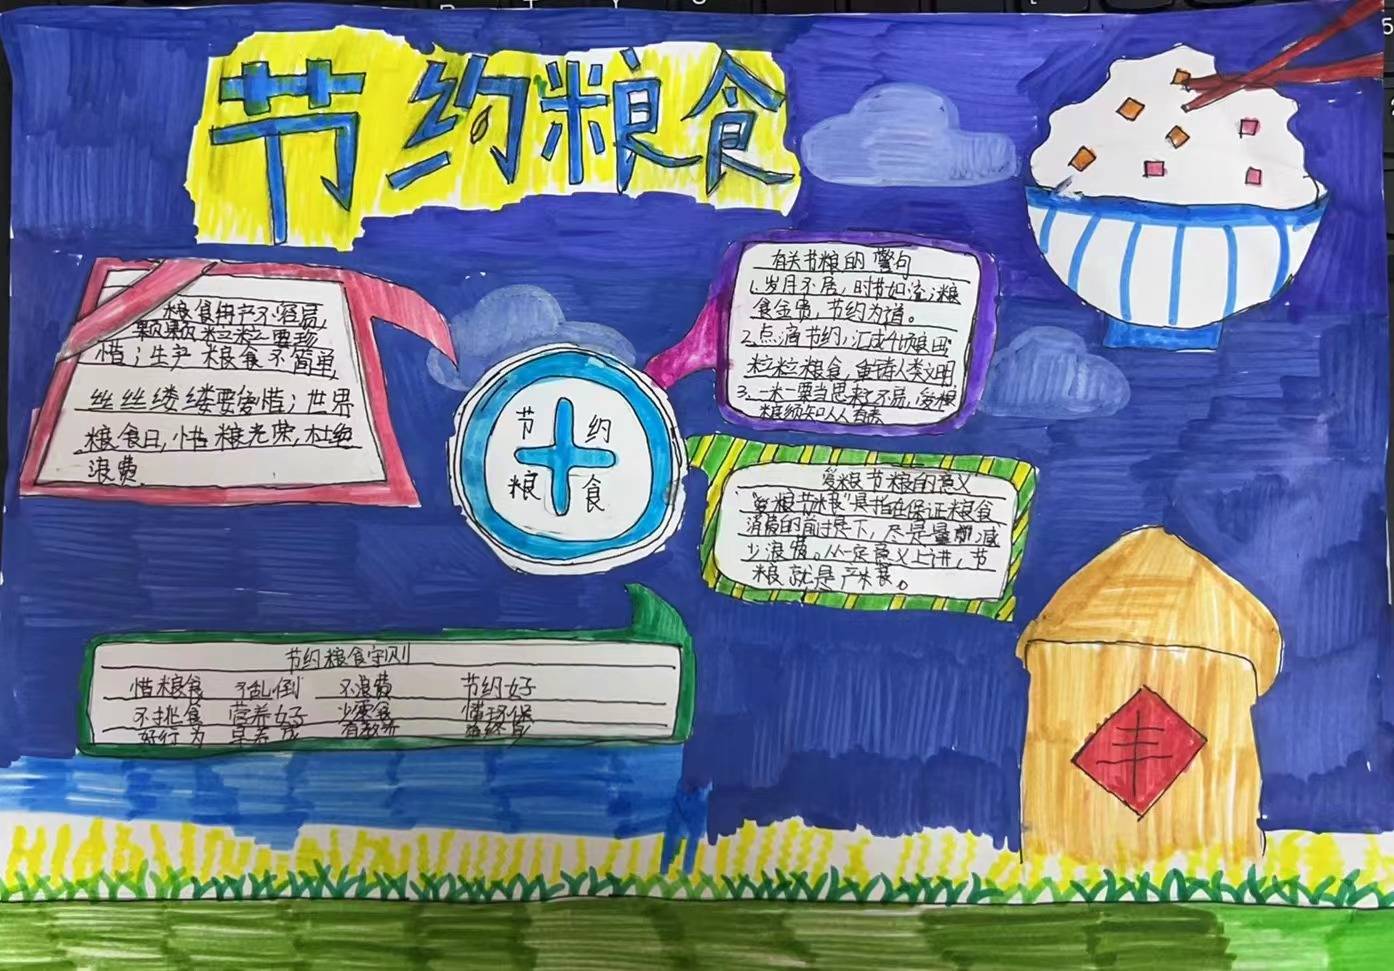 节约粮食
粮食由产不容易,
颗颗粒粒要珍
惜;生产粮食不简单,
丝丝缕缕要爱惜;世界
粮食日,惜粮光荣,杜绝
浪费.
节 约
粮 食
有关节粮的警句
1.岁月不居,时节如流;粮
食金贵,节约为道。
2.点滴节约,汇成千顷良田
粒粒粮食,重铸人类文明
3.一米一粟当思来之不易,爱粮
粮须知人人有责
爱粮节粮的意义
"爱粮节粮"是指在保证粮食
消费的前提下,尽是量即减
少浪费。从一定意义上讲,节
粮就是产粮。
节约粮食守则
惜粮食 不乱倒 不浪费 节约好
不挑食 营养好 少零食 懂环保
好行为 早养成 有教养
丰